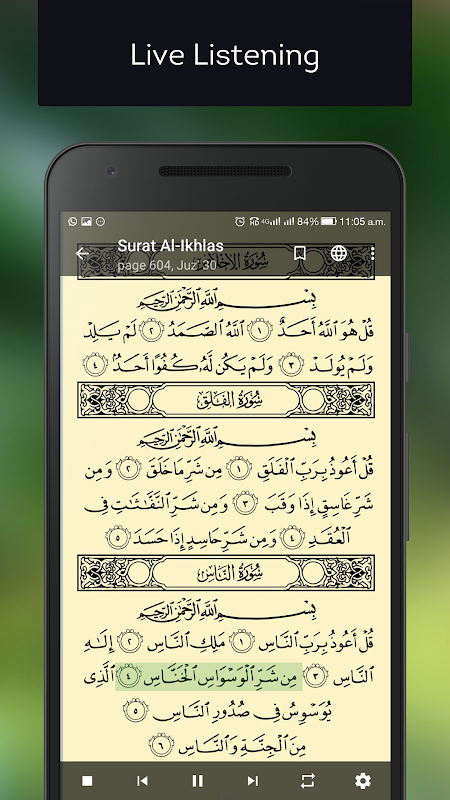 Live Listening
84% 11:05 a.m.
Surat Al-Ikhlas
page 604, Juz' 30
سُورَةُ الإِخْلَاصِ
بِسْمِ ٱللَّهِ ٱلرَّحْمَٰنِ ٱلرَّحِيمِ
قُلْ هُوَ ٱللَّهُ أَحَدٌ ١ ٱللَّهُ ٱلصَّمَدُ ٢ لَمْ يَلِدْ
وَلَمْ يُولَدْ ٣ وَلَمْ يَكُن لَّهُۥ كُفُوًا أَحَدٌۢ ٤
سُورَةُ الْفَلَقِ
بِسْمِ ٱللَّهِ ٱلرَّحْمَٰنِ ٱلرَّحِيمِ
قُلْ أَعُوذُ بِرَبِّ ٱلْفَلَقِ ١ مِن شَرِّ مَا خَلَقَ ٢ وَمِن
شَرِّ غَاسِقٍ إِذَا وَقَبَ ٣ وَمِن شَرِّ ٱلنَّفَّٰثَٰتِ فِى
ٱلْعُقَدِ ٤ وَمِن شَرِّ حَاسِدٍ إِذَا حَسَدَ ٥
سُورَةُ النَّاسِ
بِسْمِ ٱللَّهِ ٱلرَّحْمَٰنِ ٱلرَّحِيمِ
قُلْ أَعُوذُ بِرَبِّ ٱلنَّاسِ ١ مَلِكِ ٱلنَّاسِ ٢ إِلَٰهِ
ٱلنَّاسِ ٣ مِن شَرِّ ٱلْوَسْوَاسِ ٱلْخَنَّاسِ ٤ ٱلَّذِى
يُوَسْوِسُ فِى صُدُورِ ٱلنَّاسِ ٥
مِنَ ٱلْجِنَّةِ وَٱلنَّاسِ ٦